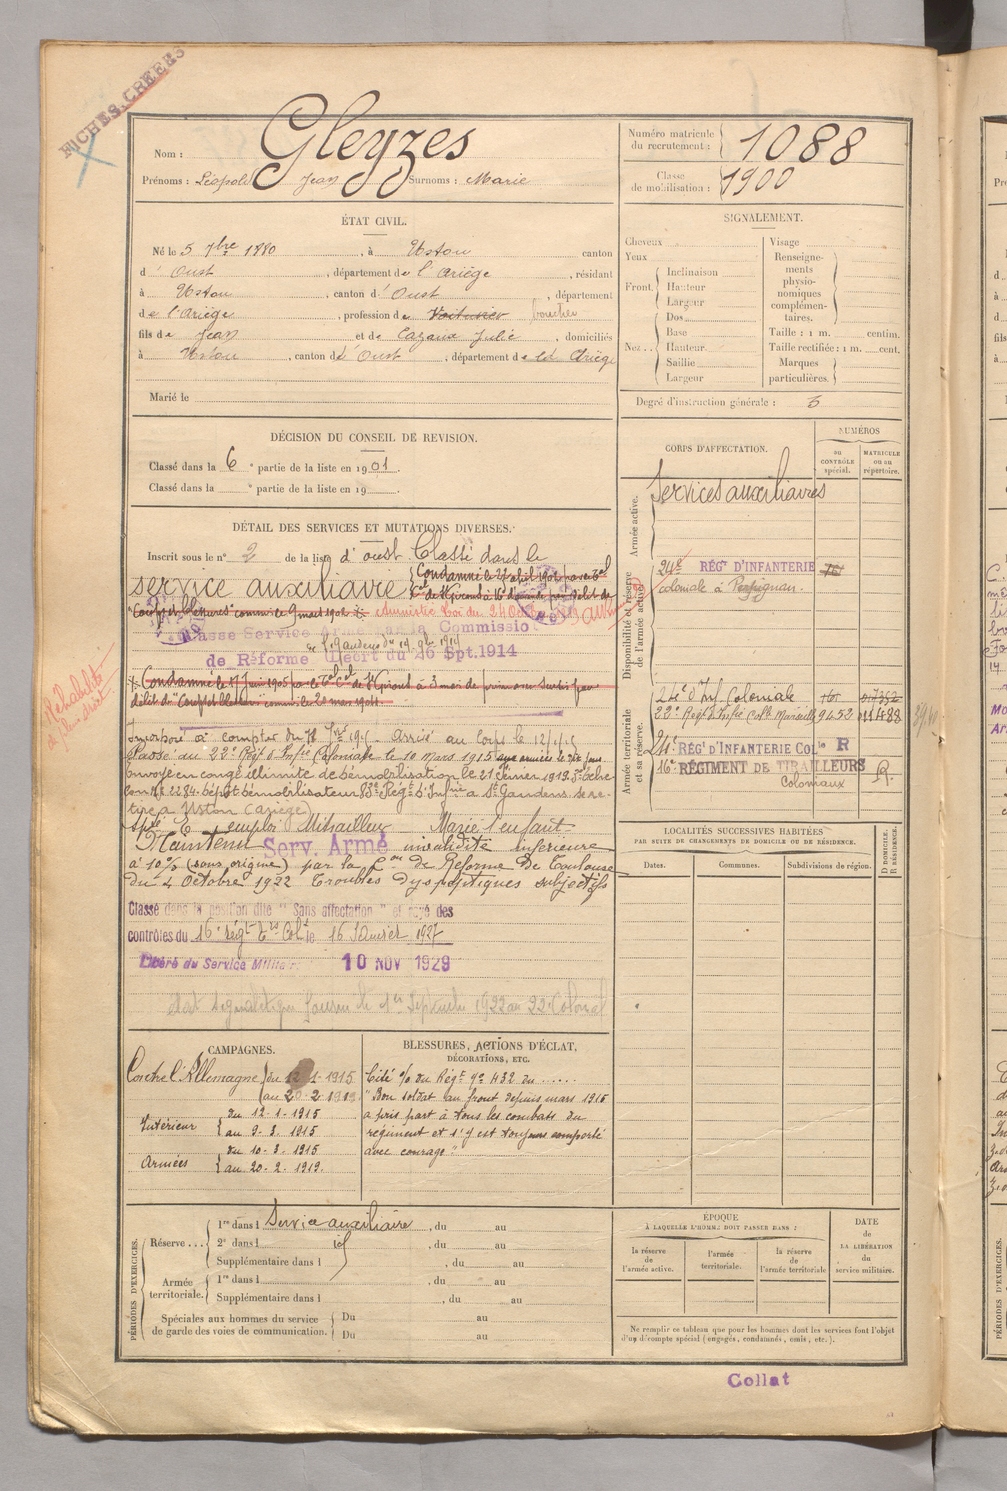 FICHES CREEES
Nom : Gleyzes
Prénoms : Léopold Jean Surnoms : Marie
Numéro matricule du recrutement : 1088
Classe de mobilisation : 1900
ÉTAT CIVIL.
Né le 5 7bre 1880, à Ustou canton
d' Oust, département de l'Ariège, résidant
à Ustou, canton d' Oust, département
de l'Ariège, profession de Voiturier boucher
fils de Jean et de Cazaux Julie, domiciliés
à Ustou, canton d' Oust, département de ld Ariège
Marié le
SIGNALEMENT.
Cheveux
Yeux
Front. Inclinaison
Hauteur
Largeur
Nez.. Dos
Base
Hauteur
Saillie
Largeur
Visage
Renseignements physionomiques complémentaires.
Taille : 1 m. centim.
Taille rectifiée : 1 m. cent.
Marques particulières.
Degré d'instruction générale : 3
DÉCISION DU CONSEIL DE REVISION.
Classé dans la 6e partie de la liste en 1901.
Classé dans la e partie de la liste en 19
DÉTAIL DES SERVICES ET MUTATIONS DIVERSES.
Inscrit sous le n° 2 de la liste d'oust Classé dans le
service auxiliaire
"Coups et blessures" commis le 9 mars 1902
Amnistié Loi du
Classé Service Armé par la Commission
de St Gaudens du
de Réforme Décret du 26 Spt. 1914
Condamné le 17 Juin 1905 par le Tal Cel de St Girons à 3 mois de prison avec sursis pour
délit de "Coups et blessures" commis le 20 mai 1904
Réhabilité de plein droit
Incorporé à compter du
Arrivé au Corps le 12/1/15
Passé au 22e Rég d'Infie Coloniale le 10 Mars 1915 aux armées le dix jour
Envoyé en congé illimité de démobilisation le 21 février 1919
dépôt démobilisateur 83e Régt d'Infrie à St Gaudens se re-
tire à Ustou (Ariège)
emploi Mitrailleur Marié 1 enfant
Maintenu Serv. Armé invalidité inférieure
à 10% (sans origine) par la Con de Réforme de Toulouse
du 4 Octobre 1922 Troubles dyspeptiques subjectifs
Classé dans la position dite "Sans affectation" et rayé des
contrôles du 16e régt Trs Colx le 16 Janvier 1927
Libéré du Service Militaire 10 NOV 1929
CORPS D'AFFECTATION.
NUMÉROS
au CONTRÔLE spécial.
MATRICULE ou au RÉPERTOIRE.
Armée active.
Services auxiliaires
Disponibilité et réserve de l'armée active.
24e RÉGt D'INFANTERIE
coloniale à Perpignan.
Armée territoriale et sa réserve.
24e d'Inf. Coloniale
22e Regt d'Infie Colle Marseille 9452 11488
24e RÉGt D'INFANTERIE COLle R
16e RÉGIMENT DE TIRAILLEURS
Coloniaux
LOCALITÉS SUCCESSIVES HABITÉES
PAR SUITE DE CHANGEMENTS DE DOMICILE OU DE RÉSIDENCE.
Dates.
Communes.
Subdivisions de région.
D DOMICILE.
R RÉSIDENCE.
CAMPAGNES.
Contre l'Allemagne du 12-1-1915
au 20-2-1919
Intérieur du 12-1-1915
au 9-3-1915
Armées du 10-3-1915
au 20-2-1919.
BLESSURES, ACTIONS D'ÉCLAT,
DÉCORATIONS, ETC.
Cité O/ du Régt No 432 du ......
"Bon soldat au front depuis mars 1915
a pris part à tous les combats du
régiment et s'y est toujours comporté
avec courage."
PÉRIODES D'EXERCICES.
Réserve... 1re dans l Service auxiliaire, du au
2e dans l id, du au
Supplémentaire dans l, du au
Armée territoriale. 1re dans l, du au
Supplémentaire dans l, du au
Spéciales aux hommes du service de garde des voies de communication. Du au
Du au
ÉPOQUE
À LAQUELLE L'HOMME DOIT PASSER DANS :
la réserve de l'armée active.
l'armée territoriale.
la réserve de l'armée territoriale
DATE DE LA LIBÉRATION du service militaire.
Ne remplir ce tableau que pour les hommes dont les services font l'objet
d'un décompte spécial (engagés, condamnés, omis, etc.).
Collat